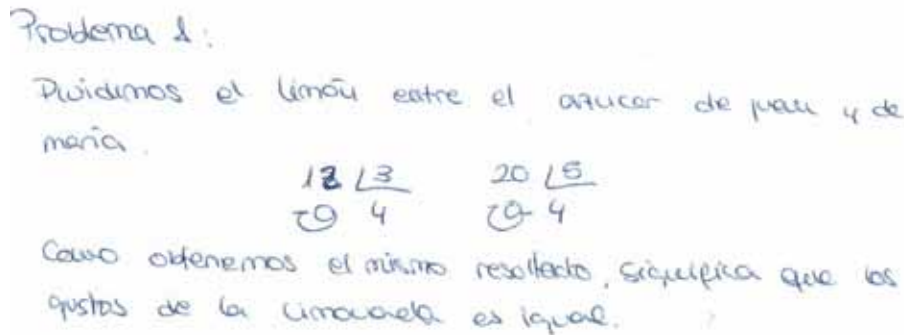 Problema 1:
Dividimos el limón entre el azucar de juan y de
maría.
12 3 20 5
0 4 0 4
Como obtenemos el mismo resoltado, significa que los
gustos de la limonada es igual.